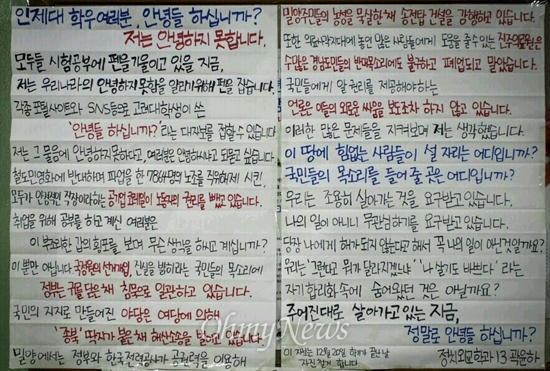 인제대 학우여러분, 안녕들 하십니까?
저는 안녕하지 못합니다.
모두들 시험공부에 펜을 기울이고 있을 지금,
저는 우리나라의 안녕하지 못함을 알리기위해 펜을 잡습니다.
각종 포털사이트와 SNS등으로 고려대학생이 쓴
'안녕들 하십니까?'라는 대자보를 접할 수 있습니다.
저는 그 물음에 안녕하지 못하다고, 여러분은 안녕하시냐고 되묻고 싶습니다.
철도민영화에 반대하며 파업을 한 7843명의 노조를 직위해제 시킨,
모두가 안정적인 직장이라하는 공기업 코레일이 노동자의 권리를 뺏고 있습니다.
취업을 위해 공부를 하고 계신 여러분은
이 부조리한 갑의 횡포를 보며 무슨 생각을 하고 계십니까?
이 뿐만 아닙니다. 국정원의 선거개입, 진실을 밝히라는 국민들의 목소리에
정부는 귀를 닫은 채 침묵으로 일관하고 있습니다.
국민의 지지로 만들어진 야당은 여당에 의해
'종북' 딱지가 붙은 채 해산소송을 밟고 있습니다.
밀양에서는 정부와 한국전력공사가 공권력을 이용해
밀양주민들의 농성을 묵살한 채 송전탑 건설을 강행하고 있습니다.
또한 의료사각지대에 놓인 많은 사람들에게 도움을 줄 수 있는 진주의료원은
수많은 경남도민들의 반대목소리에도 불구하고 폐업되고 말았습니다.
국민들에게 알 권리를 제공해야하는
언론은 이들의 외로운 싸움을 보도조차 하지 않고 있습니다.
이러한 많은 문제들을 지켜보며 저는 생각했습니다.
이 땅에 힘없는 사람들이 설 자리는 어디입니까?
국민들의 목소리를 들어 줄 곳은 어디입니까?
우리는 조용히 살아가는 것을 요구받고 있습니다.
나의 일이 아니니 무관심하기를 요구받고 있습니다.
당장 나에게 해가 되지 않는다고 해서 꼭 나의 일이 아닌것일까요?
우리는 '그런다고 뭐가 달라지겠느냐' '나 살기도 바쁘다' 라는
자기합리화 속에 숨어왔던 것은 아닐까요?
주어진대로 살아가고 있는 지금,
정말로 안녕들 하십니까?
이 자보는 12월 20일 학기 끝난 날
자진 철거 합니다.
정치외교학과 13 곽윤하
OhmyNews